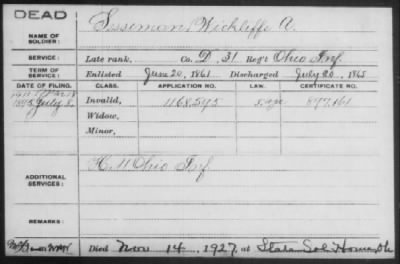 DEAD
NAME OF SOLDIER: Esseman, Wickliffe A.
SERVICE: Late rank, Co. D, 31 Reg't Ohio Inf.
TERM OF SERVICE: Enlisted June 20, 1861 Discharged July 20, 1865
DATE OF FILING. CLASS. APPLICATION NO. LAW. CERTIFICATE NO.
1893 July 8 Invalid, 1168593 897161
Widow,
Minor,
ADDITIONAL SERVICES: K. 11 Ohio Inf
REMARKS:
Died Nov 14, 1927, at State Sol. Home, Oh